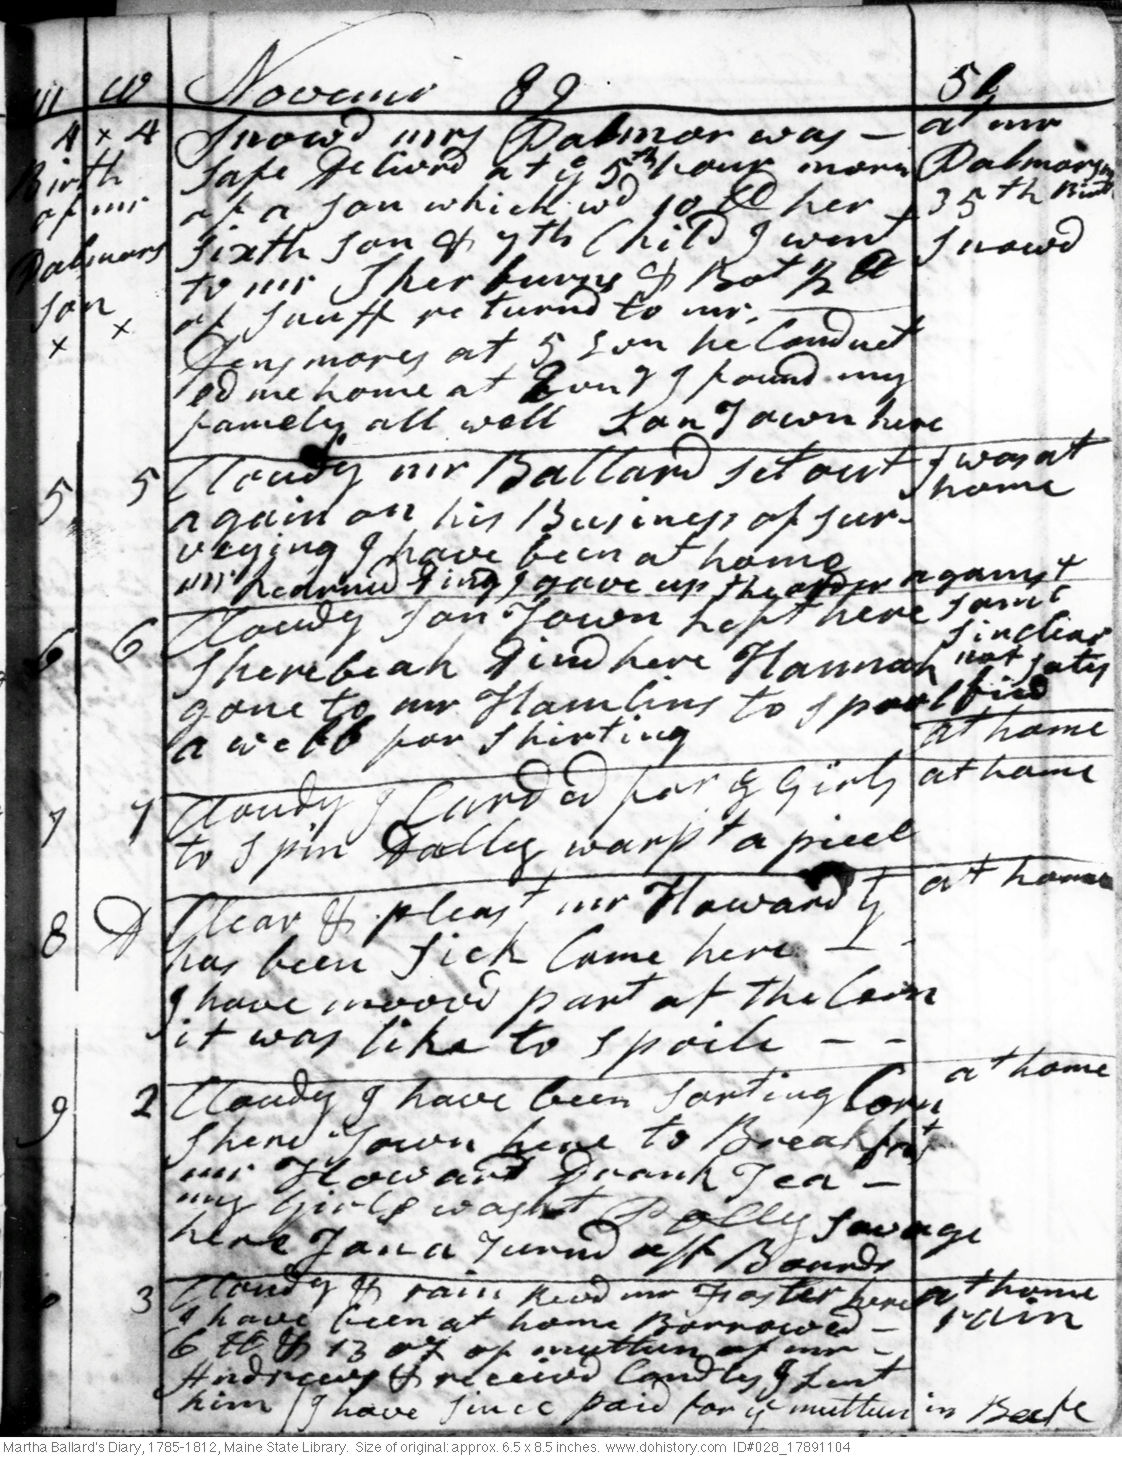 m w Novemr 89 51
4 x 4 Snowd mrs Dalmor was - at mr
Birth Safe Delivrd at ye 5th hour morn Dalmors
of mr of a son which wd 10 lb her 35th Birth
Dalmors sixth son & 7th Child I went Snowd
son to mr Sherburns & Bot
x x of Snuff returnd to mr.
Densmores at 5 Son he Conduct
ed me home at Evng I found my
famely all well Son Town here
5 5 Cloudy mr Ballard set out I was at
again on his Business of sur- home
veying I have been at home
mr Learned Dind I gave up the order against
6 6 Cloudy son Town kept here Saml
Sherebeah Dind here Hannah Sinclear
not satis
gone to mr Hamlins to spool fied
a webb for shirting at home
7 7 Cloudy I Carded for ye Girls at home
to spin Dolly warpt a piece
8 D Clear & pleast mr Howard yt at home
has been sick Came here -
I have moovd part of the Corn
it was like to spoile - -
9 2 Cloudy I have been sorting Corn at home
Shere Town here to Breakfast
mr Howard Drank Tea -
my Girls washt Polly Savage
here Jona Turnd off Boards
3 Cloudy & rain Revd mr Foster here at home
I have been at home Borrowed - rain
6 lb & 13 oz of mutton of mr -
Andrews & received Candles I Lent
him (I have since paid for ye mutton in Beefe
Martha Ballard's Diary, 1785-1812, Maine State Library. Size of original: approx. 6.5 x 8.5 inches. www.dohistory.com ID#028_17891104